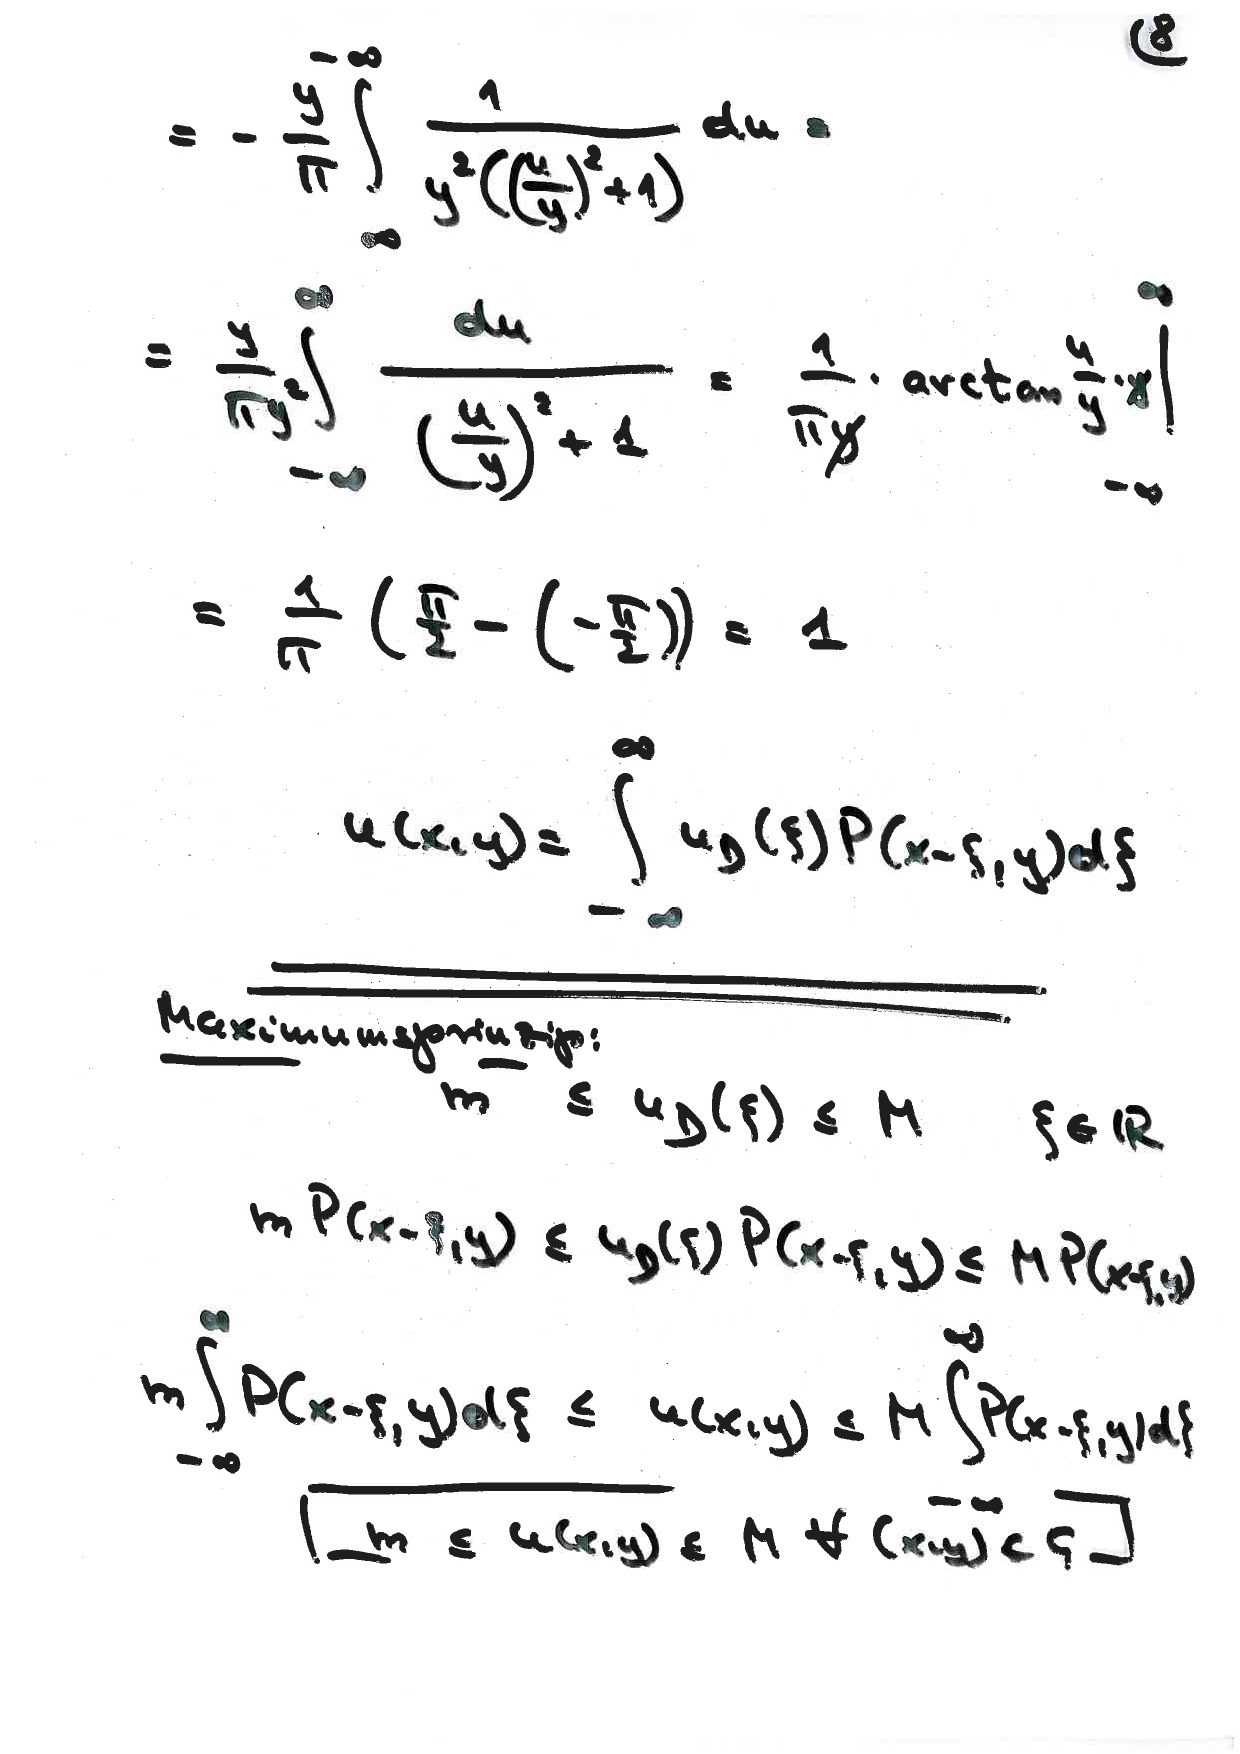 (8
= - y/π ∫_{∞}^{-∞} 1/(y²((u/y)²+1)) du =
= y/(πy²) ∫_{-∞}^{∞} du/((u/y)² + 1) = 1/(πy) · arctan u/y · y |_{-∞}^{∞}
= 1/π (π/2 - (-π/2)) = 1
u(x,y) = ∫_{-∞}^{∞} u_D(ξ) P(x-ξ,y) dξ
Maximumsprinzip:
m ≤ u_D(ξ) ≤ M ξ ∈ ℝ
m P(x-ξ,y) ≤ u_D(ξ) P(x-ξ,y) ≤ M P(x-ξ,y)
m ∫_{-∞}^{∞} P(x-ξ,y) dξ ≤ u(x,y) ≤ M ∫_{-∞}^{∞} P(x-ξ,y) dξ
m ≤ u(x,y) ≤ M ∀ (x,y) ∈ G